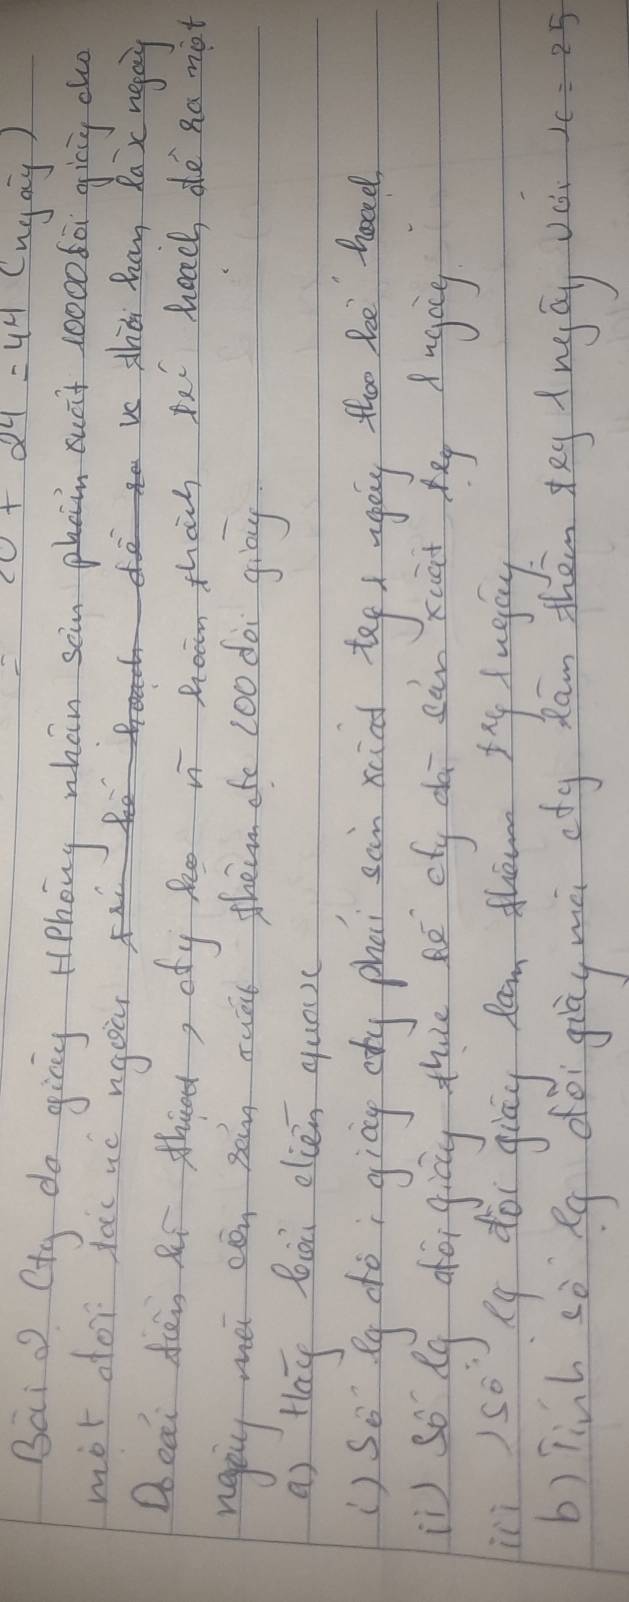 20 + 24 = 44 (ngày)
Bài 2. Cty da giày HPhòng nhận sản phẩm xuất 10000 đôi giày cho
một đối tác nc ngoài trừ kế hoạch đề ra vs thời hạn là x ngày
Do cải tiến kĩ thuật, cty ko n hoàn thành kế hoạch đề ra một
ngày mà còn sản xuất thêm đc 200 đôi giày.
a) Hãy biểu diễn qua x
i) Số lg đôi giày cty phải sản xuất trg 1 ngày theo kế hoạch
ii) Số lg đôi giày thực tế cty đã sản xuất trg 1 ngày.
iii) Số lg đôi giày làm thêm trg 1 ngày.
b) Tính số lg đôi giày mà cty làm thêm trg 1 ngày với x = 25